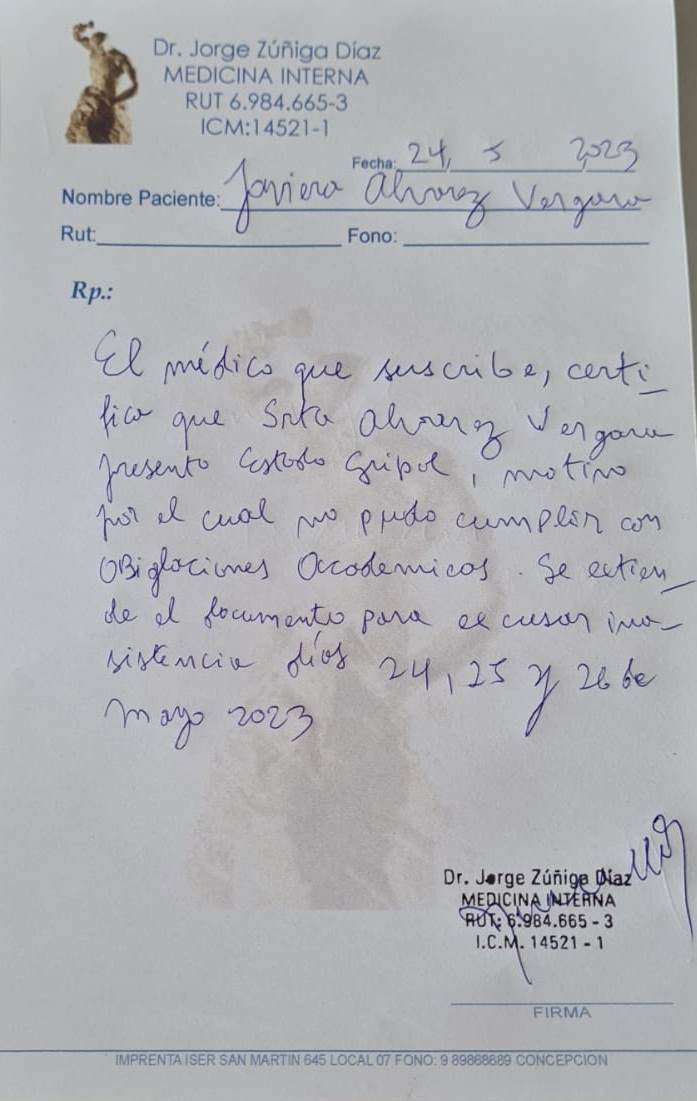 Dr. Jorge Zúñiga Díaz
MEDICINA INTERNA
RUT 6.984.665-3
ICM:14521-1
Fecha: 24, 5 2,023
Nombre Paciente: Javiera Alvarez Vergara
Rut: Fono:
Rp.:
El médico que suscribe, certi-
fica que Srta Alvarez Vergara
presento Estado Gripal, motivo
por el cual no pudo cumplir con
OBiglaciones Accademicas. Se extien-
de el documento para excusar ina-
sistencia días 24, 25 y 26 de
mayo 2023
Dr. Jorge Zúñiga Díaz
MEDICINA INTERNA
RUT: 6.984.665 - 3
I.C.M. 14521 - 1
FIRMA
IMPRENTA ISER SAN MARTIN 645 LOCAL 07 FONO: 9 89868689 CONCEPCION